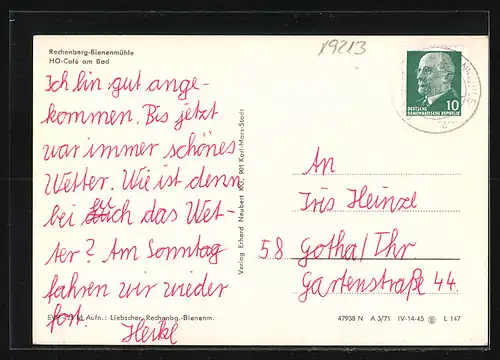 Rechenberg-Bienenmühle
HO-Café am Bad
19213
DEUTSCHE
DEMOKRATISCHE REPUBLIK
10
Ich bin gut ange-
kommen. Bis jetzt
war immer schönes
Wetter. Wie ist denn
bei euch das Wet-
ter? Am Sonntag
fahren wir wieder
fort.
Heike
Verlag Erhard Neubert KG, 901 Karl-Marx-Stadt
An
Iris Heinze
58 Gotha/Thr
Gartenstraße 44
Aufn.: Liebscher, Rechenbg.-Bienenm.
47938 N A 3/71 IV-14-45 L 147